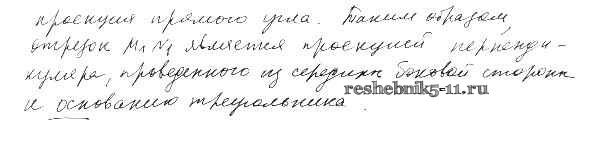 проекция прямого угла. Таким образом,
отрезок M₁N₁ является проекцией перпенди-
куляра, проведенного из середины боковой стороны
к основанию треугольника.
reshebnik5-11.ru